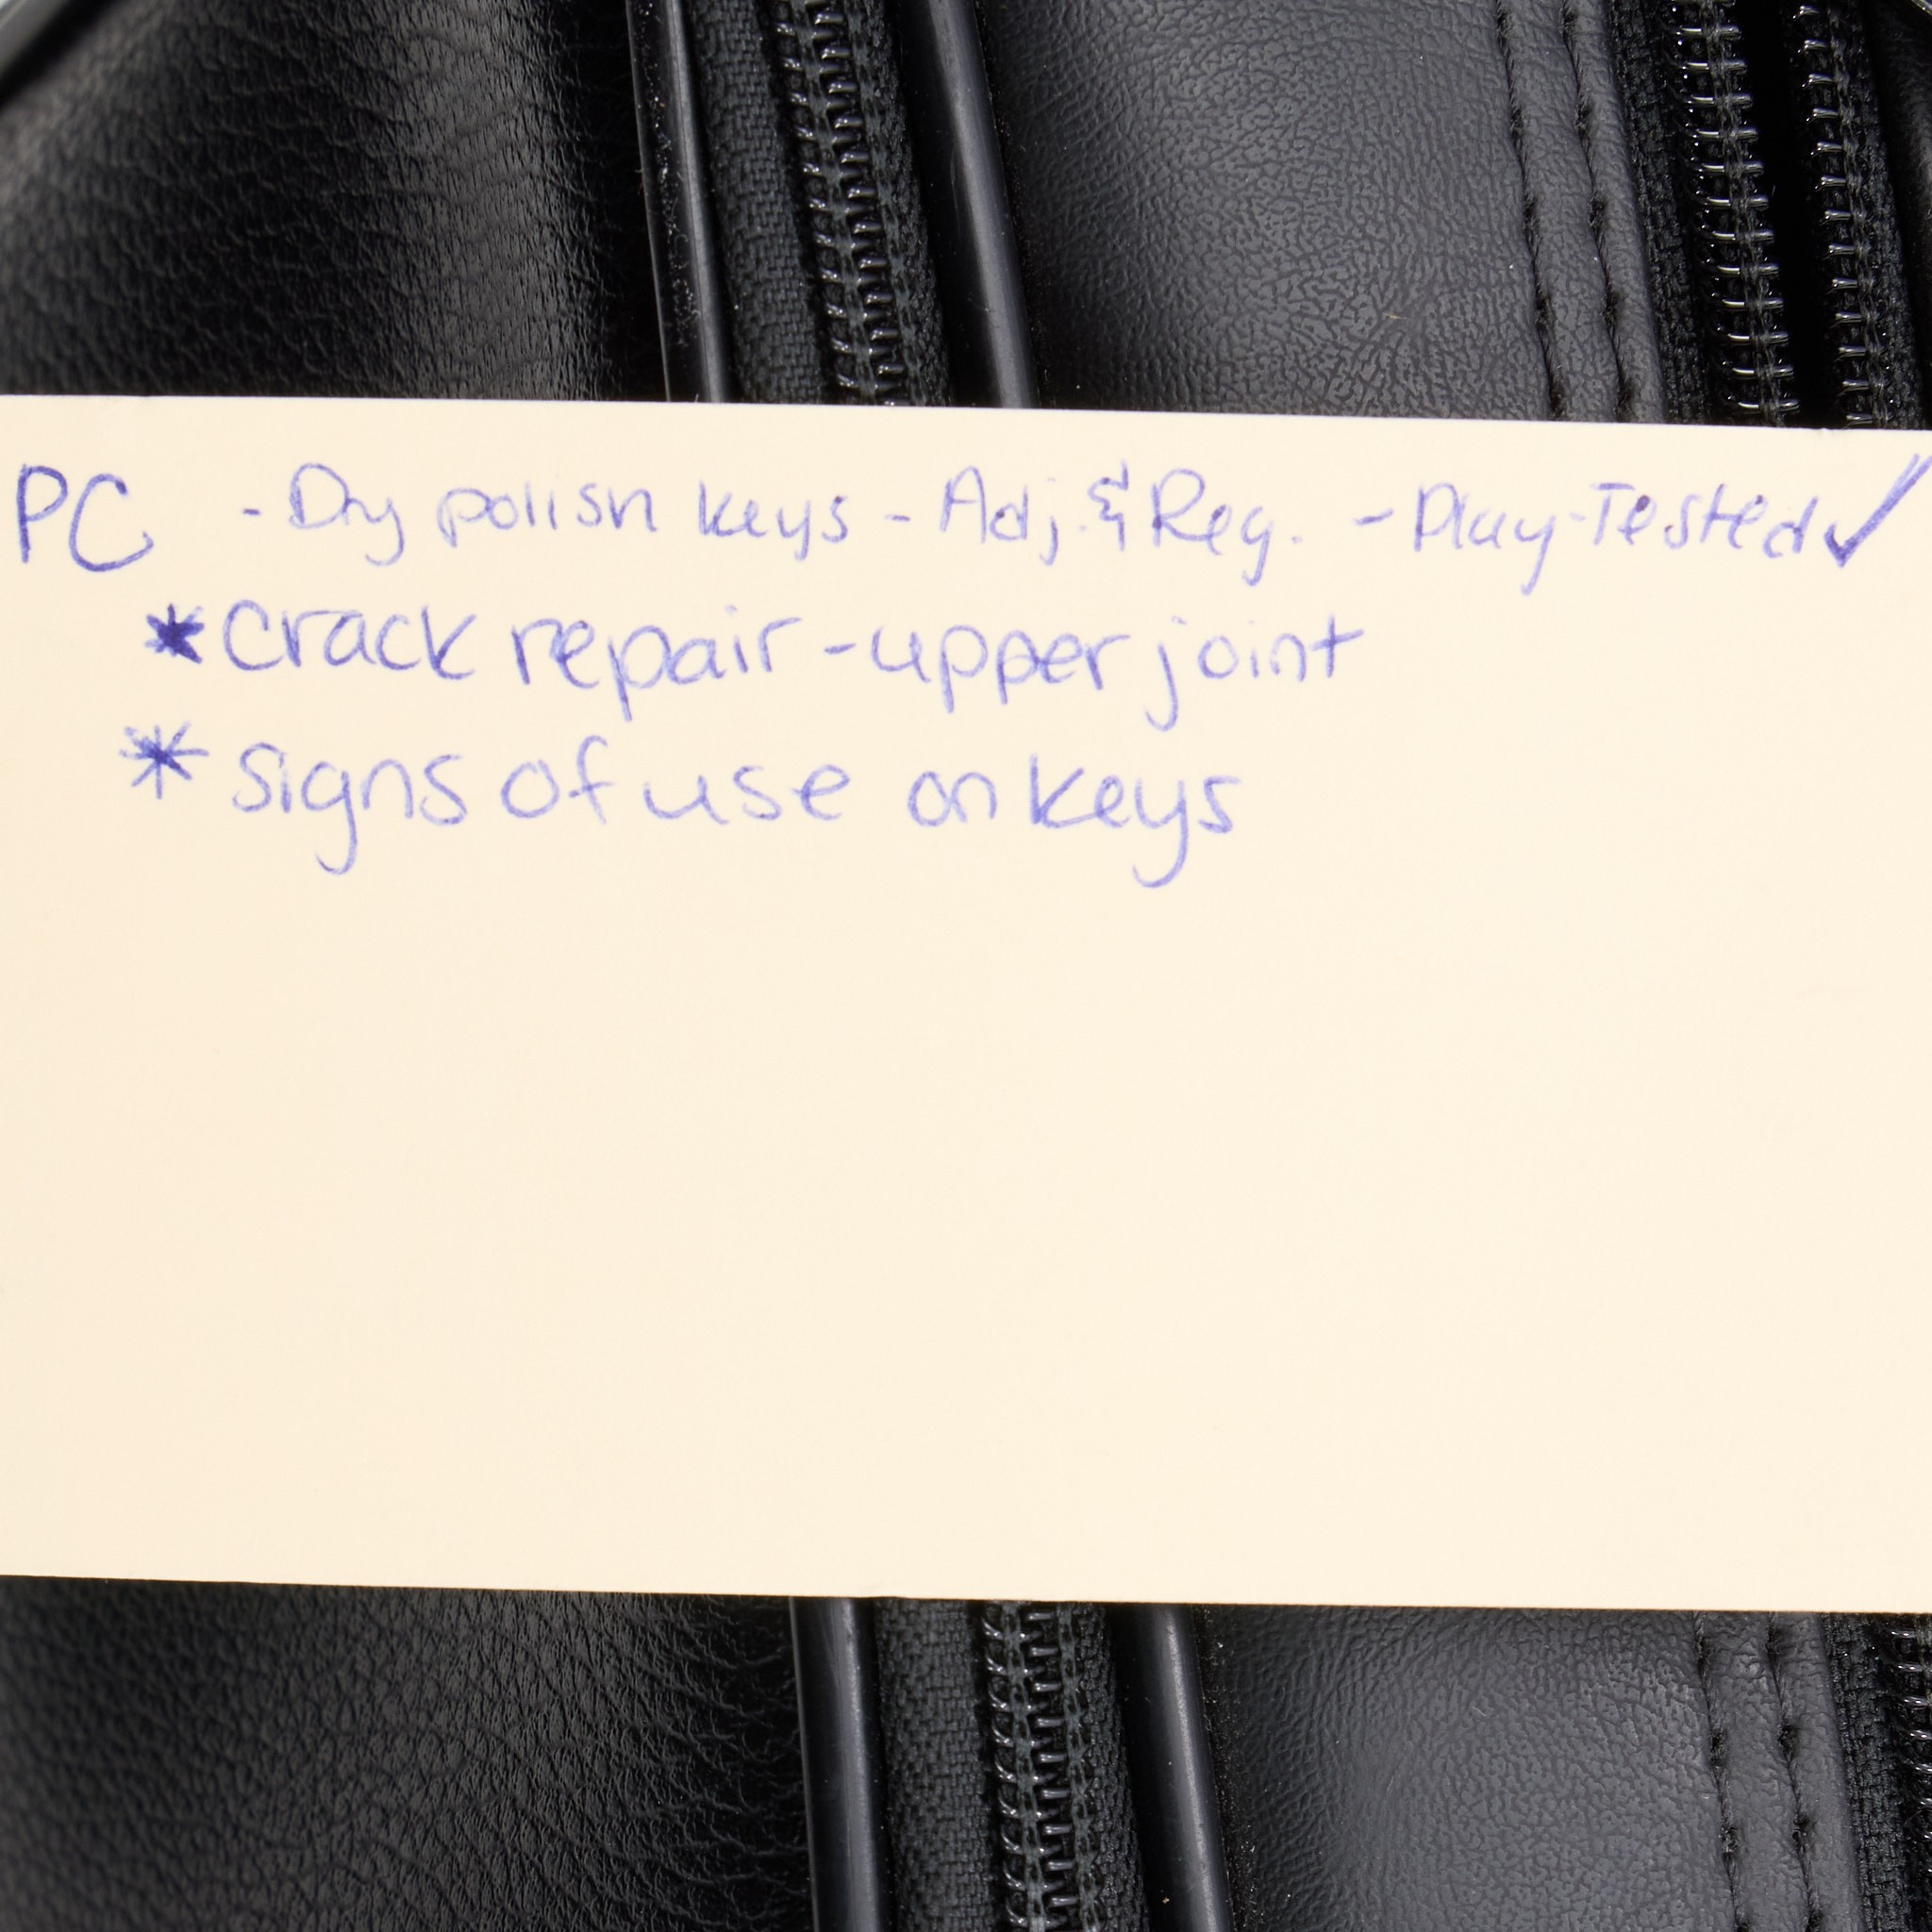 PC - Dry polish keys - Adj. & Reg. - Play-Tested ✓
* Crack repair - upper joint
* signs of use on keys